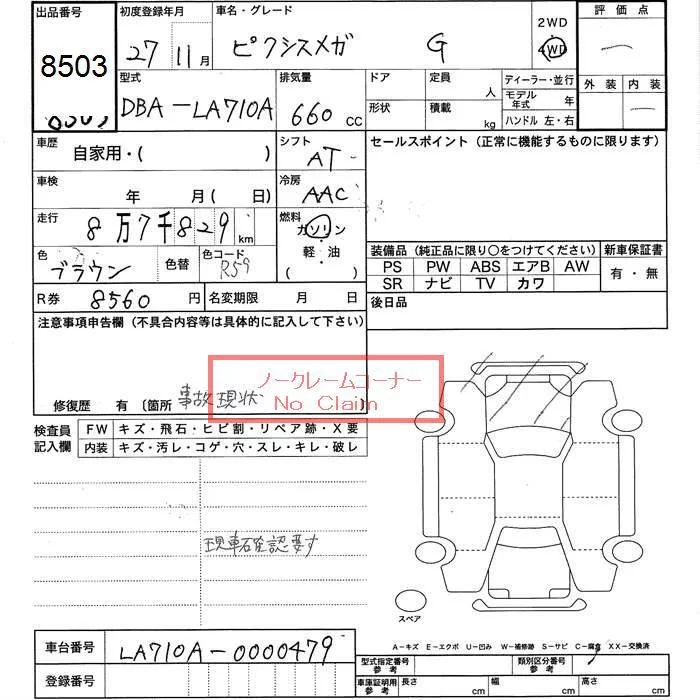 出品番号 初度登録年月 車名・グレード 2WD 評価点
8503 27 11月 ピクシスメガ G 4WD ―
型式 排気量 ドア 定員 人 ディーラー・並行 外装 内装
DBA-LA710A 660 CC 形状 積載 kg モデル年式 年 ―
ハンドル 左・右
車歴 自家用・( ) シフト AT セールスポイント (正常に機能するものに限ります)
車検 年 月( 日) 冷房 AAC
走行 8万7千829 km 燃料 ガソリン
軽・油
( )
色 ブラウン 色替 色コード R59
装備品 (純正品に限り○をつけてください) 新車保証書
PS PW ABS エアB AW 有・無
SR ナビ TV カワ
R券 8560円 名変期限 月 日 後日品
注意事項申告欄 (不具合内容等は具体的に記入して下さい)
ノークレームコーナー
No Claim
修復歴 有 〔箇所 事故現状 〕
検査員記入欄 FW キズ・飛石・ヒビ割・リペア跡・X要
内装 キズ・汚レ・コゲ・穴・スレ・キレ・破レ
現車確認要す
スペア
A-キズ E-エクボ U-凹み W-補修跡 S-サビ C-腐食 XX-交換済
車台番号 LA710A-0000479
登録番号
型式指定番号 参考 類別区分番号 参考
車庫証明用 参考 長さ cm 幅 cm 高さ cm